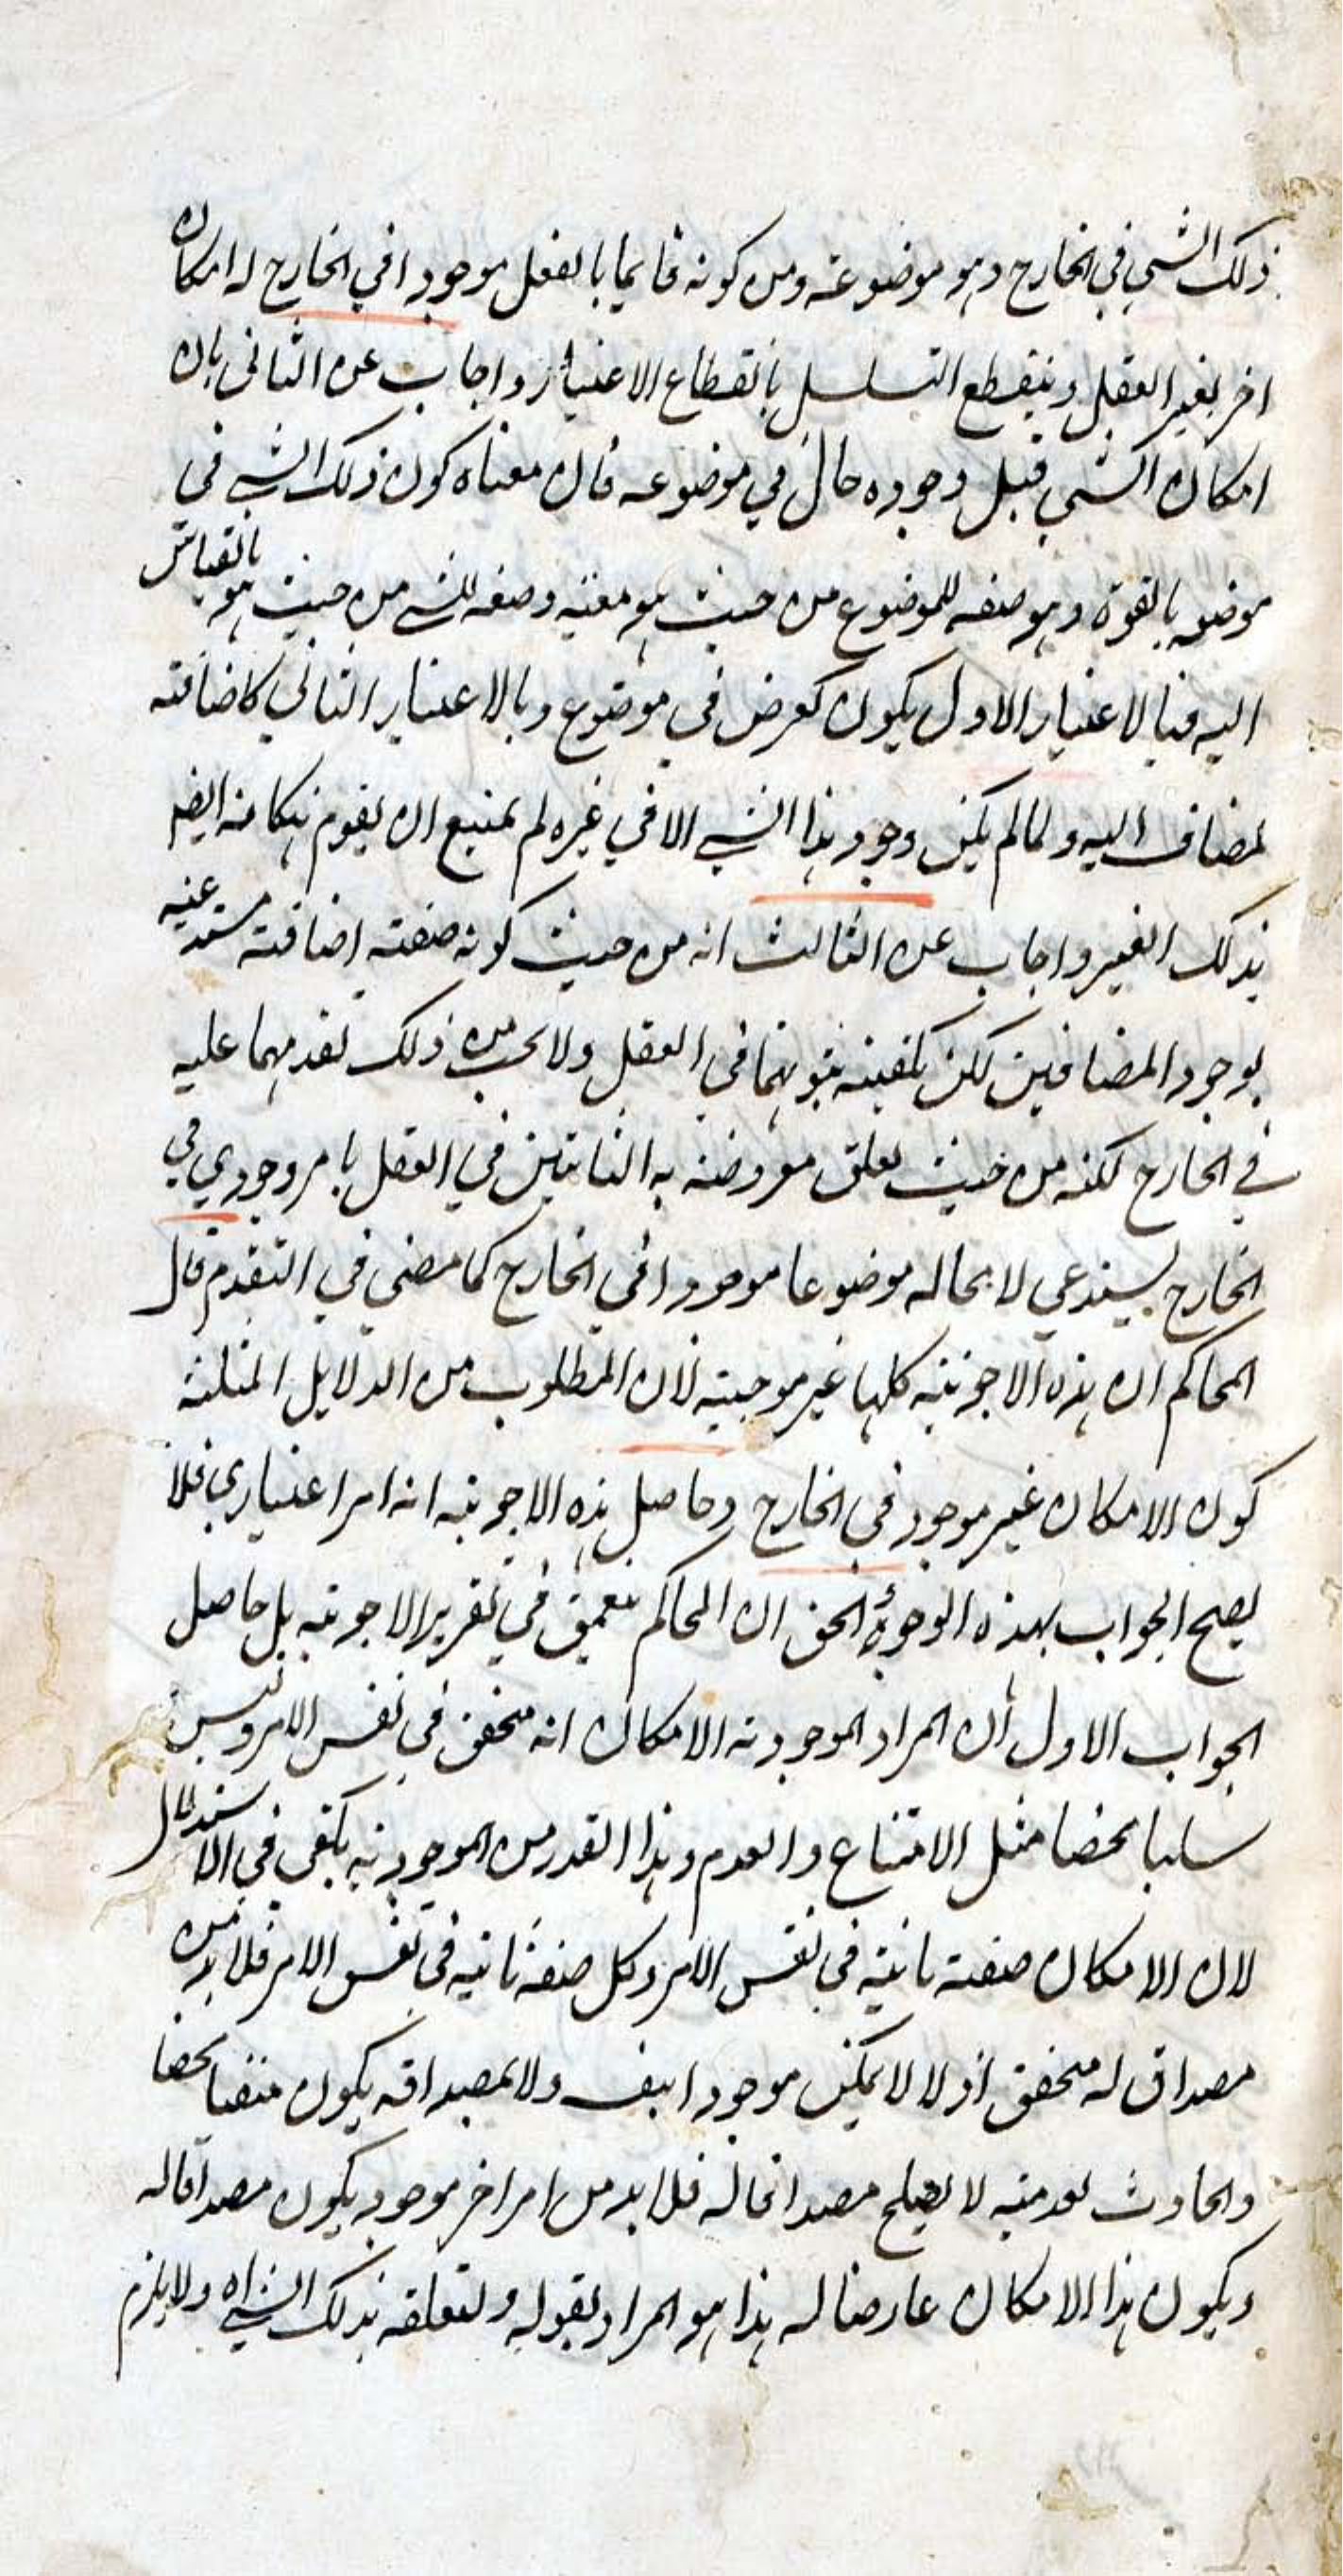 ذلك الشي في الخارج وهو موضوعه ومن كونه قايما بالعقل موجودا في الخارج له امكان
اخر بغير العقل وينقطع التسلسل بانقطاع الاعتبار واجاب عن الثاني بان
امكان الشي قبل وجوده حال في موضوعه فان معناه كون ذلك الشي في
موضوعه بالقوة وهو صفه للموضوع من حيث هو فيه وصفه للشي من حيث هو بالقياس
اليه فبالاعتبار الاول يكون كعرض في موضوع وبالاعتبار الثاني كاضافته
لمضاف اليه ولما لم يكن وجود هذا الشي الا في غيره لم يمتنع ان يقوم امكانه ايضا
بذلك الغير واجاب عن الثالث انه من حيث كونه صفته اضافته مستدعيه
بوجود المضافين لكن يكفيه ثبوتهما في العقل ولا يجب من ذلك تقدمهما عليه
في الخارج لكنه من حيث تعلق معروضه به الثابتين في العقل بامر وجودي في
الخارج يستدعي لا محاله موضوعا موجودا في الخارج كما مضى في التقدم قال
المحاكم ان هذه الاجوبته كلها غير موجبته لان المطلوب من الدلايل الثلثه
كون الامكان غير موجود في الخارج وحاصل هذه الاجوبته انه امر اعتباري فلا
يصح الجواب بهذه الوجوه الحق ان المحاكم تعمق في تقرير الاجوبته بل حاصل
الجواب الاول ان المراد الموجودته الامكان انه متحقق في نفس الامر وليس
سلبا محضا مثل الامتناع والعدم وهذا القدر من الموجوديه يكفي في الاستدلال
لان الامكان صفته ثابته في نفس الامر وكل صفه ثابته في نفس الامر فلا بد من
مصداق له متحقق اذ لا لا يكن موجودا بنفسه ولا بمصداقه يكون منفيا محضا
والحادث لعدميته لا يصلح مصداقا له فلا بد من امر اخر موجود يكون مصداقا له
ويكون هذا الامكان عارضا له هذا هو المراد بقوله ولتعلقه بذلك الشي اه ولا يلزم